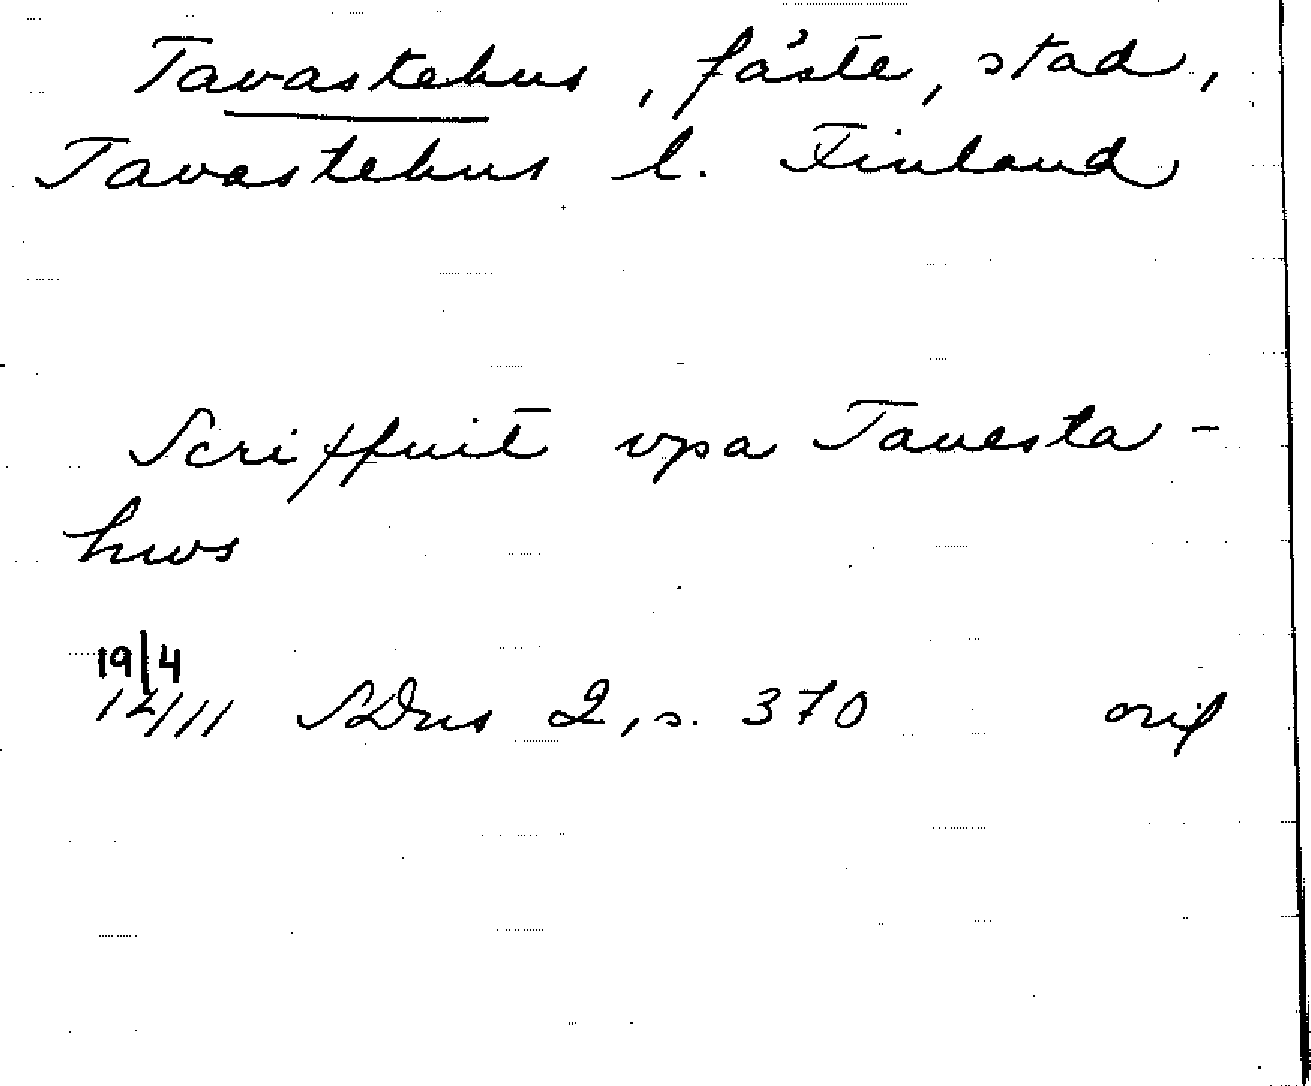 Tavastehus, fäste, stad,
Tavastehus l. Finland
Scriffuit vpa Tauesta-
hws
19/4
1411 SDns 2, s. 370 orig